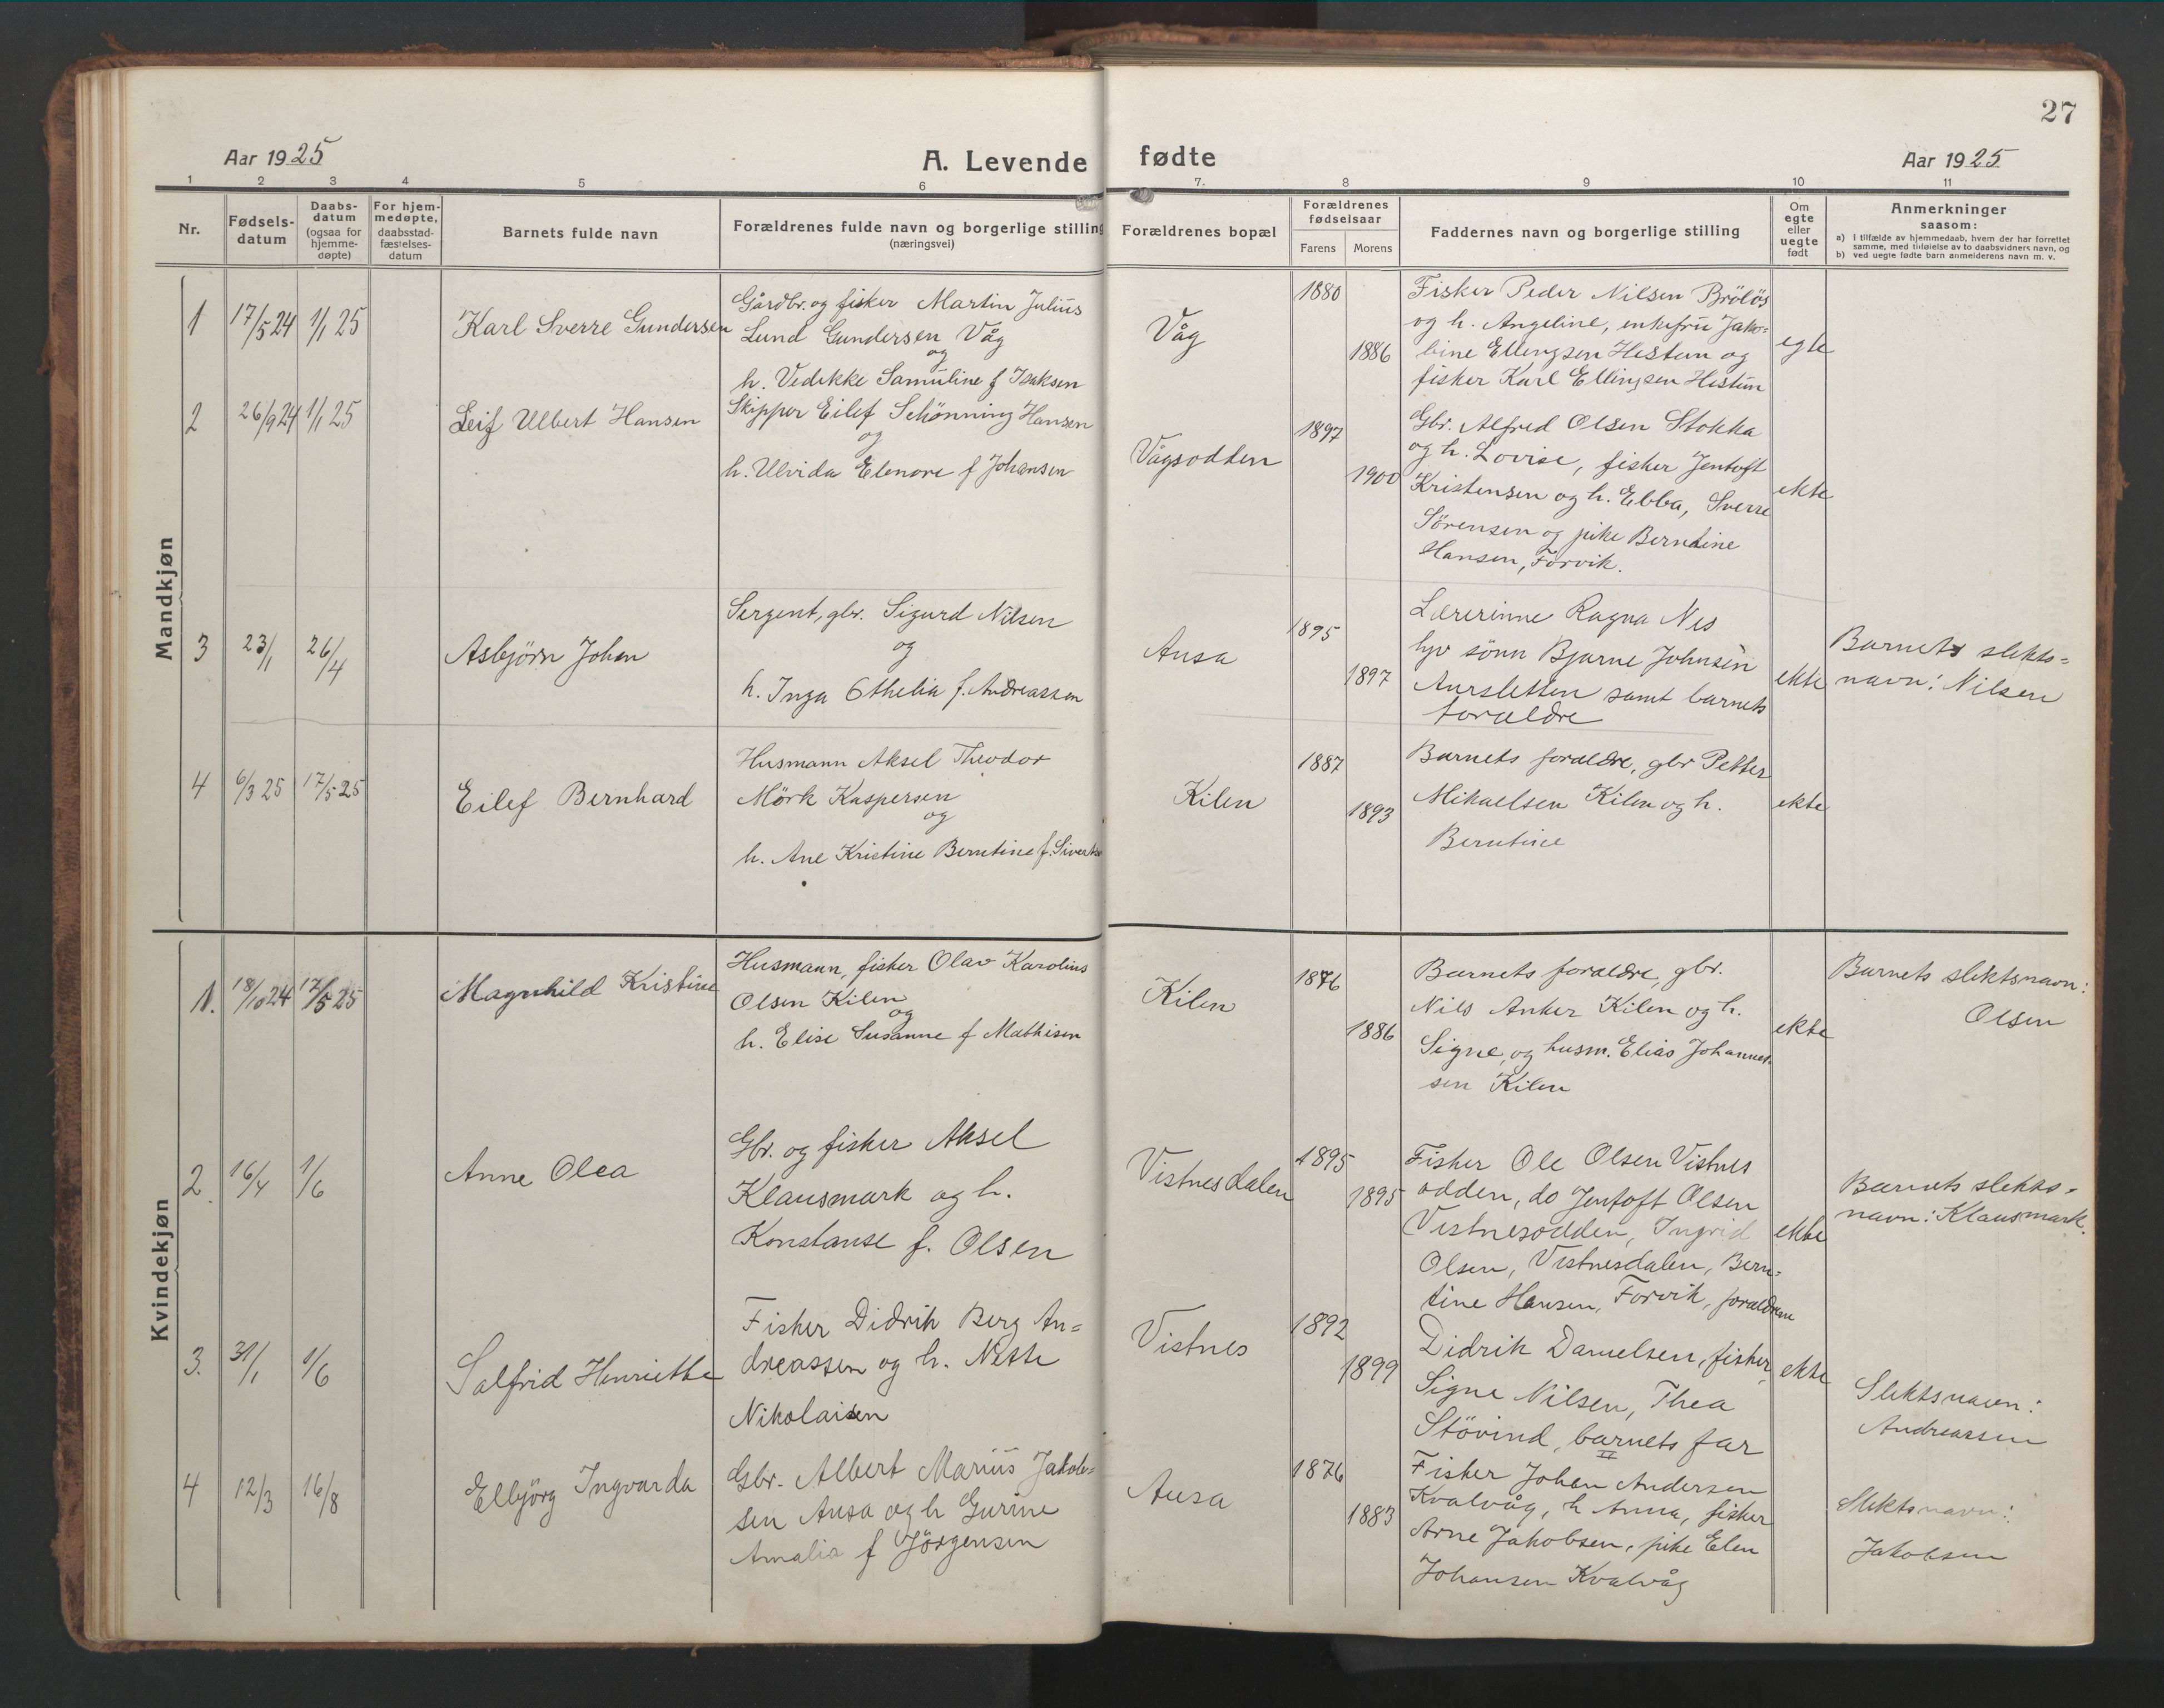 27
Aar 1925
A. Levende fødte
Aar 1925
1 2 3 4 5 6 7. 8 9 10 11
Nr.
Fødsels-
datum
Daabs-
datum
(ogsaa for
hjemme-
døpte)
For hjem-
medøpte,
daabsstad-
fæstelses-
datum
Barnets fulde navn
Forældrenes fulde navn og borgerlige stilling
(næringsvei)
Forældrenes bopæl
Forældrenes
fødselsaar
Farens Morens
Faddernes navn og borgerlige stilling
Om
egte
eller
uegte
født
Anmerkninger
saasom:
a) I tilfælde av hjemmedaab, hvem der har forrettet
samme, med tilføielse av to daabsvidners navn, og
b) ved uegte fødte barn anmelderens navn m. v.
Mandkjøn
1
17/5 24
1/1 25
Karl Sverre Gundersen
Gårdbr. og fisker Martin Julius
Lund Gundersen Våg
og
h. Vedikke Samuline f Isaksen
Våg
1880
1886
Fisker Peder Nilsen Brölös
og h. Angeline, enkefru Jako=
bine Ellingsen Hestun og
fisker Karl Ellingsen Hestun
egte
2
26/9 24
1/1 25
Leif Ulbert Hansen
Skipper Eilef Schönning Hansen
og
h. Ulvida Elenore f Johansen
Vågsodden
1897
1900
Gbr. Alfred Olsen Stokka
og h. Lovise, fisker Jentoft
Kristensen og h. Ebba, Sverre
Sörensen og pike Berntine
Hansen, Forvik.
ekte
3
23/1
26/4
Asbjörn Johan
Sergent, gbr. Sigurd Nilsen
og
h. Inga Othelia f. Andreassen
Ausa
1895
1897
Lærerinne Ragna Nes
hjv sönn Bjarne Johnsen
Aursletten samt barnets
foreldre
ekte
Barnets slekts=
navn: Nilsen
4
6/3 25
17/5 25
Eilef Bernhard
Husmann Aksel Theodor
Mörk Kaspersen
og
h. Ane Kristine Berntine f. Sivertsen
Kilen
1887
1893
Barnets foreldre, gbr Petter
Mikaelsen Kilen og h.
Berntine
ekte
Kvindekjøn
1.
18/10 24
17/5 25
Magnhild Kristine
Husmann, fisker Olav Karolius
Olsen Kilen
og
h. Elise Susanne f Mathisen
Kilen
1876
1886
Barnets foreldre, gbr.
Nils Anker Kilen og h.
Signe, og husm. Elias Johannes-
sen Kilen
ekte
Barnets slektsnavn:
Olsen
2.
16/4
1/6
Anne Olea
Gbr. og fisker Aksel
Klausmark og h.
Konstanse f. Olsen
Vistnesdalen
1895
1895
Fisher Ole Olsen Vistnes
odden, do Jentoft Olsen
Vistnesodden, Ingrid
Olsen, Vistnesdalen, Bern=
tine Hansen, Forvik, foreldrene
ekte
Barnets slekts=
navn: Klausmark.
3.
31/1
1/6
Salfrid Henriette
Fisker Didrik Berg An=
dreassen og h. Nette
Nikolaisen
Vistnes
1892
1899
Didrik Danielsen, fisker,
Signe Nilsen, Thea
Stövind, barnets far
ekte
Slektsnavn:
Andreassen
4
12/3
16/8
Elbjörg Ingvarda
Gbr. Albert Marius Jakob=
sen Ausa og h Gurine
Amalia f Jörgensen
Ausa
1876
1883
Fisker Johan Andersen
Kvalvåg, h Anna, fisker
Arne Jakobsen, pike Elen
Johansen Kvalvåg
Slektsnavn:
Jakobsen